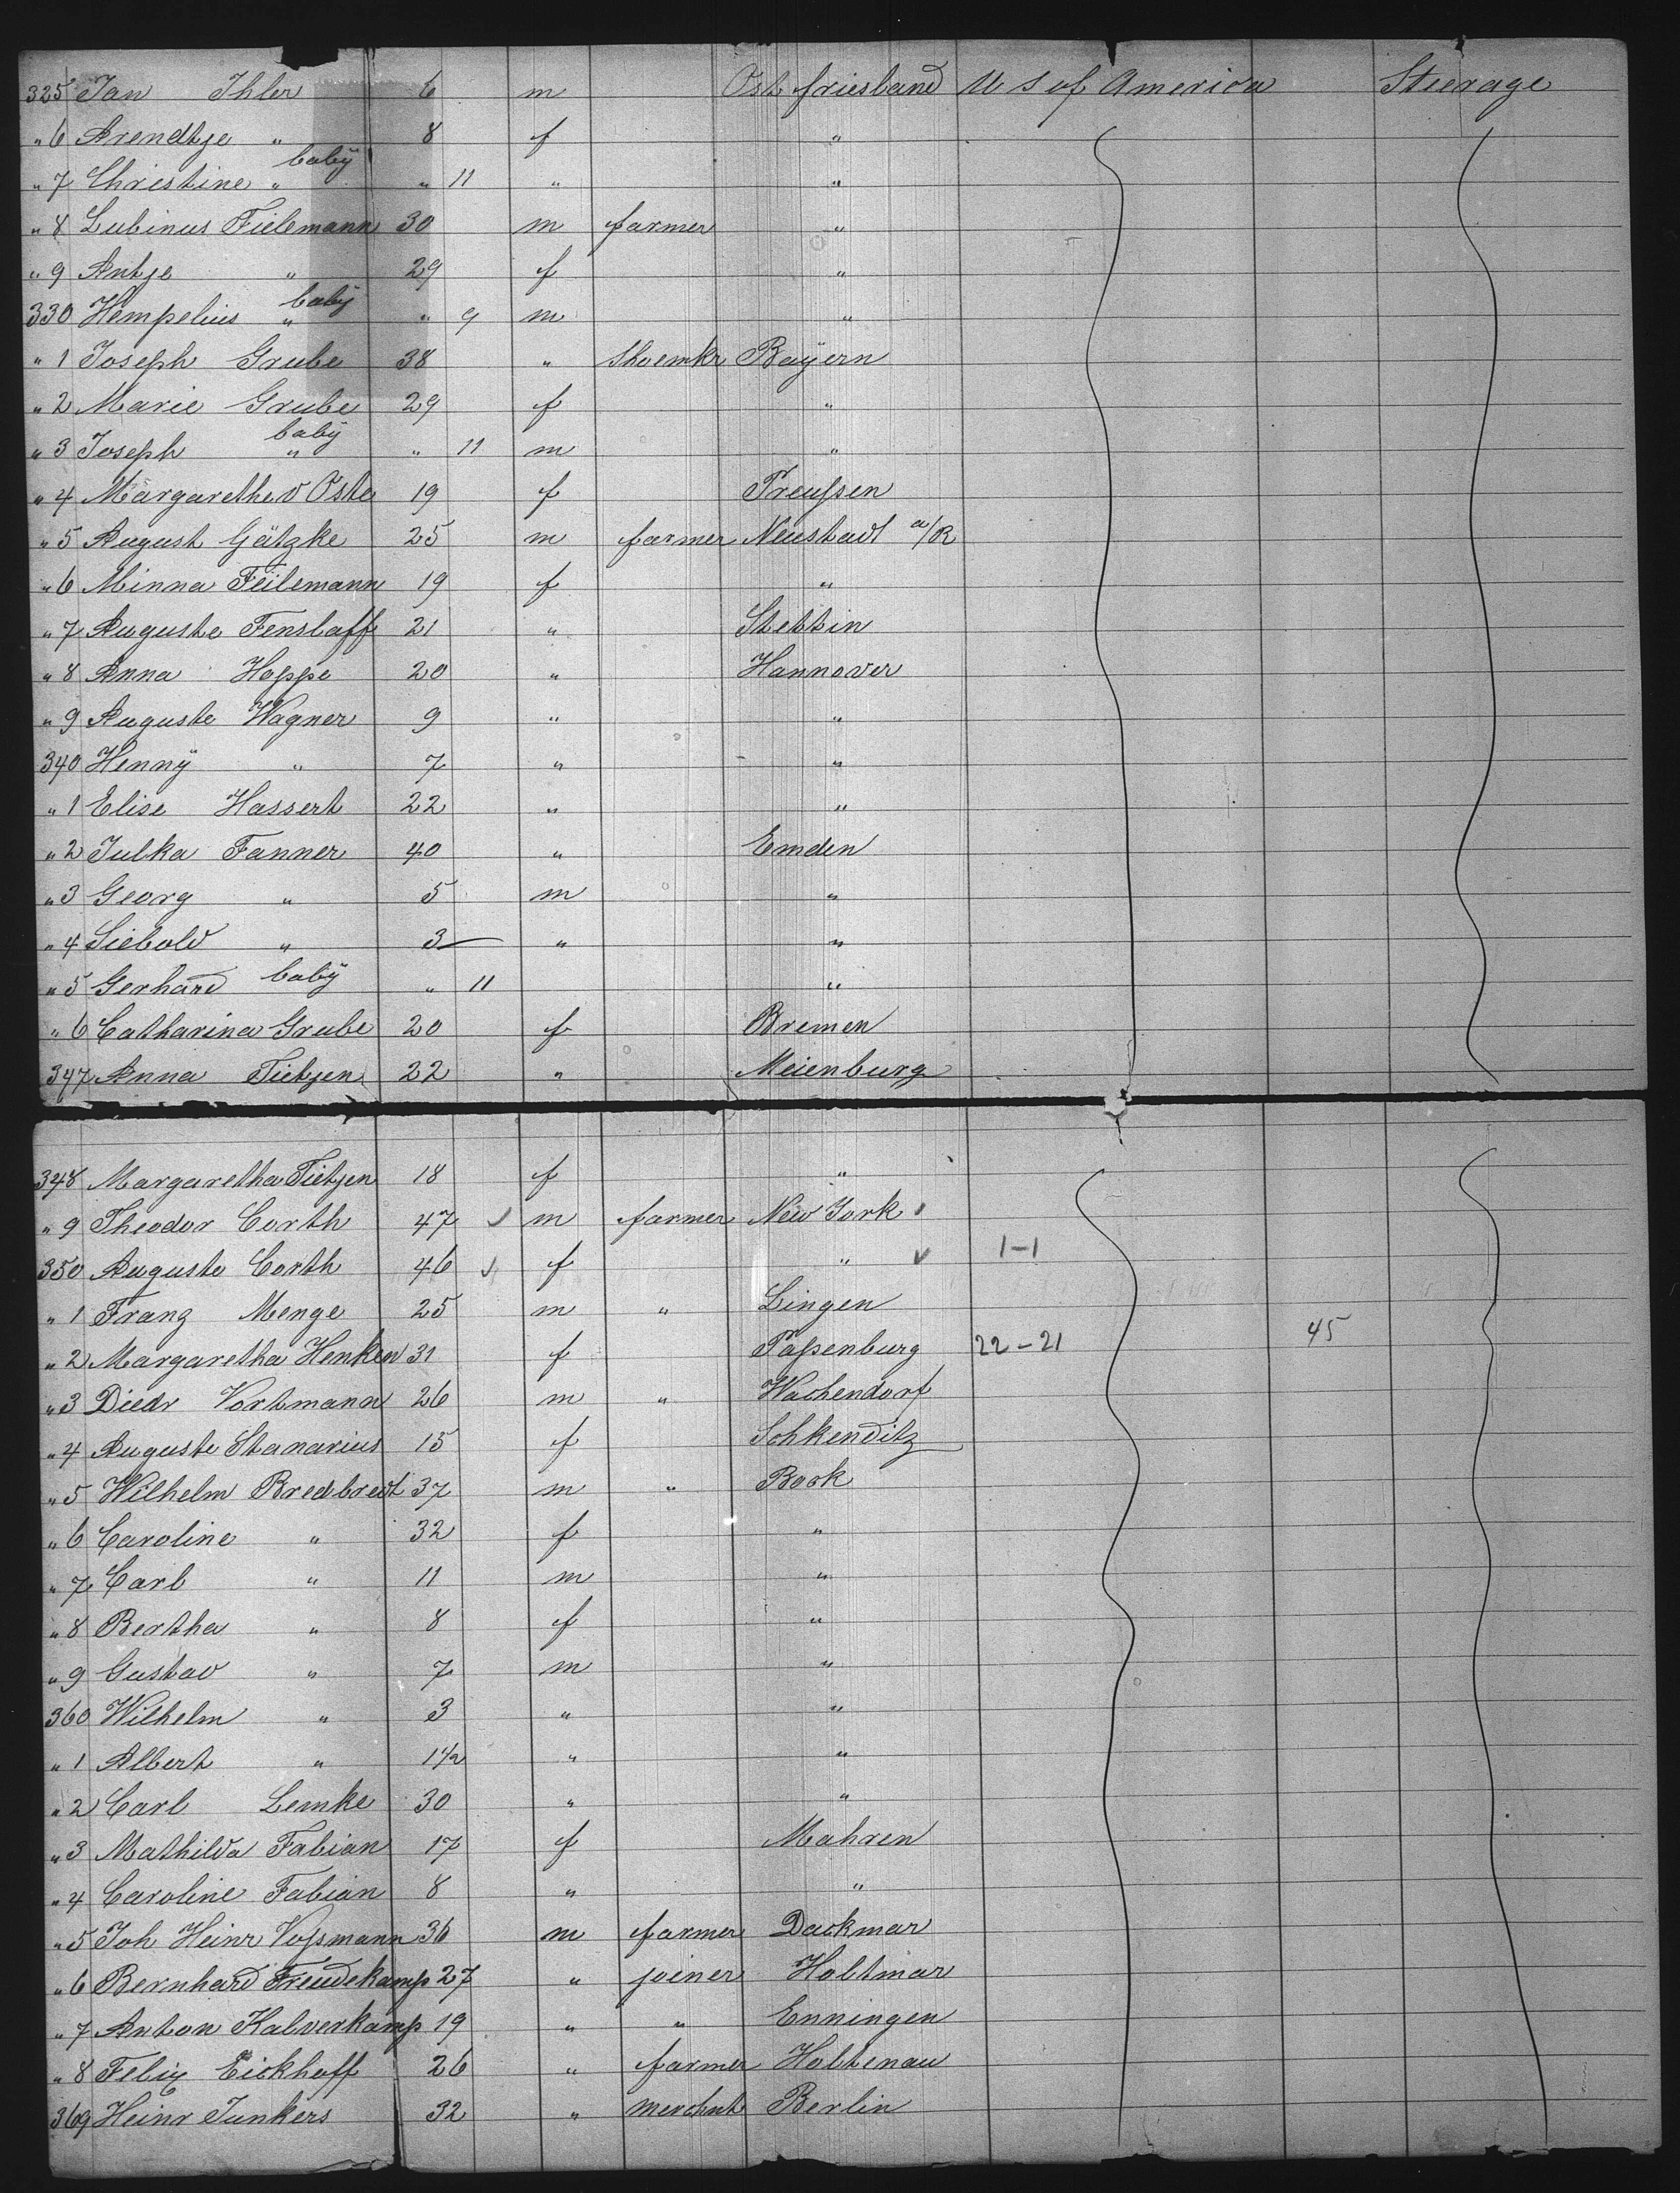 325 Jan Ihler 6 m Ostfriesland U S of America Steerage
" 6 Arendtje " 8 f "
" 7 Christine " baby " 11 " "
" 8 Lubinus Tielemann 30 m farmer "
" 9 Antje " 29 f "
330 Hempelius " baby " 9 m "
" 1 Joseph Grube 38 " Shoemkr Bayern
" 2 Marie Grube 29 f "
" 3 Joseph " baby " 11 m "
" 4 Margarethe v Oste 19 f Preußen
" 5 August Gätzke 25 m farmer Neustadt a/R
" 6 Minna Feilemann 19 f "
" 7 Auguste Tenslaff 21 " Stettin
" 8 Anna Hoppe 20 " Hannover
" 9 Auguste Wagner 9 " "
340 Henny " 7 " "
" 1 Elise Hassert 22 " "
" 2 Julka Fanner 40 " Emden
" 3 Georg " 5 m "
" 4 Siebold " 3 " "
" 5 Gerhard baby " 11 "
" 6 Catharina Grube 20 f Bremen
347 Anna Tietjen 22 " Meienburg
348 Margaretha Tietjen 18 f "
" 9 Theodor Corth 47 m farmer New York
350 Auguste Corth 46 f " 1-1
" 1 Franz Menge 25 m " Lingen
" 2 Margaretha Henken 31 f Papenburg 22-21 45
" 3 Diedr Vortmann 26 m " Wachendorf
" 4 Auguste Stanarius 15 f Schkenditz
" 5 Wilhelm Bredbredt 37 m " Bock
" 6 Caroline " 32 f "
" 7 Carl " 11 m "
" 8 Bertha " 8 f "
" 9 Gustav " 7 m "
360 Wilhelm " 3 " "
" 1 Albert " 1 1/2 " "
" 2 Carl Lemke 30 " "
" 3 Mathilda Fabian 17 f Mahren
" 4 Caroline Fabian 8 " "
" 5 Joh Heinr Voßmann 36 m farmer Dackmar
" 6 Bernhard Freudekamp 27 " joiner Holtmar
" 7 Anton Kalverkamp 19 " " Enningen
" 8 Felix Eickhoff 26 " farmer Holtenau
369 Heinr Junkers 32 " merchnt Berlin